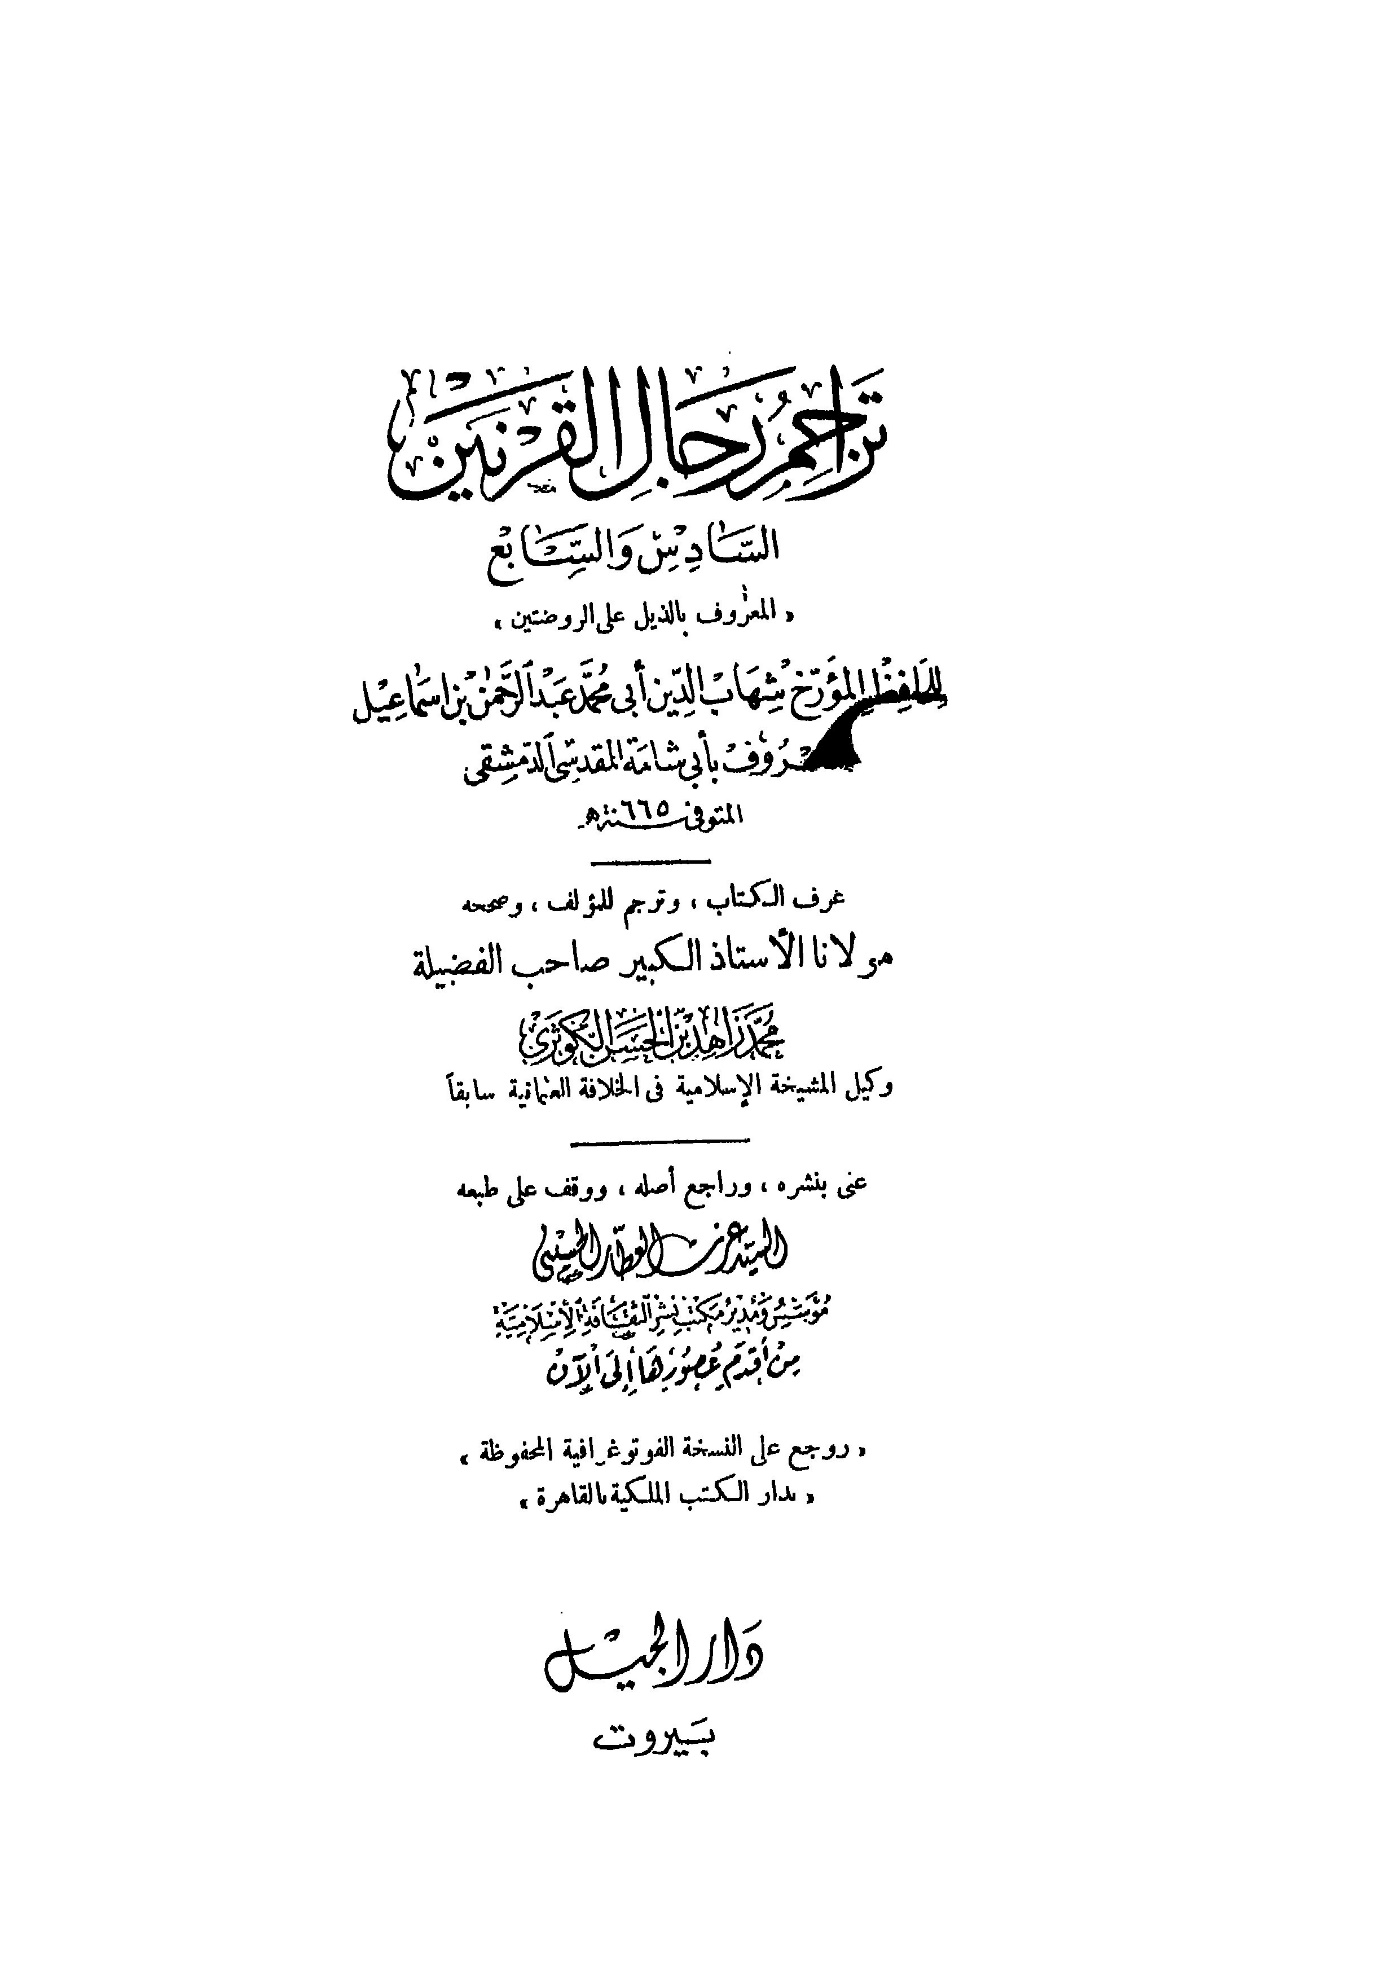 تَرَاجِمُ رِجَالِ القَرْنَيْن
السَّادِسِ وَالسَّابِعْ
« المعرُوف بالذيل على الروضتين »
لِلحَافِظِ المؤَرِّخ شِهَابْ الدِّين أبى مُحمَّد عَبْد الرَّحمٰن بْن اسمَاعِيْل
بأبى شامَة المقدسِّى الدِّمَشِقى
المتوفى سنة ٦٦٥ هـ
عرف الكتاب ، وترجم للمؤلف ، وصححه
مولانا الأستاذ الكبير صاحب الفضيلة
مُحمَّد زَاهِد بْن الحَسَن الكَوثَرِي
وكيل المشيخة الإسلامية فى الخلافة العثمانية سابقاً
عنى بنشره ، وراجع أصله ، ووقف على طبعه
السيّد عزت العطّار الحسيْني
مُؤسِّسُ وَمُدِيْرُ مَكتبِ نشرِ الثقَافَةِ الإسْلَامِيَّةِ
مِنْ أقدَمِ عُصُورِهَا إلىَ الآنْ
« روجع على النسخة الفوتوغرافية المحفوظة »
« بدار الكتب الملكية بالقاهرة »
دَار الجيْل
بَيروت